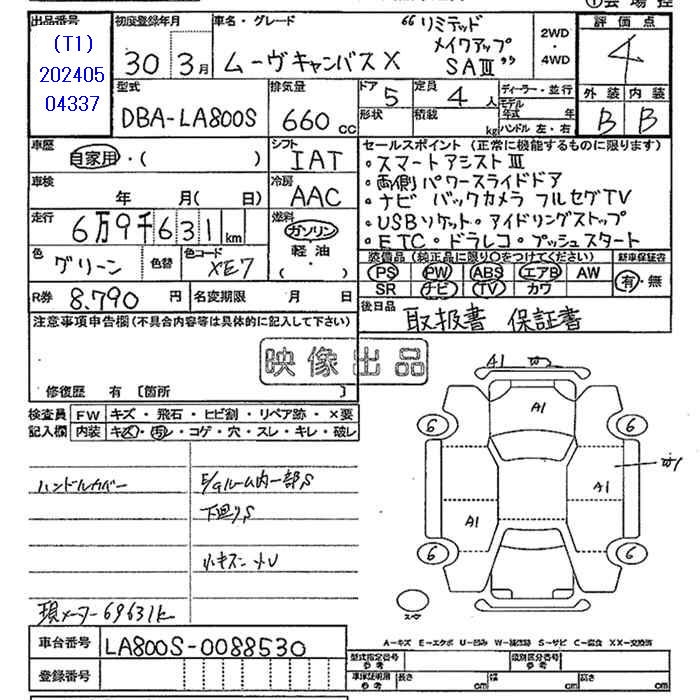 ① 会場控
出品番号
(T1)
202405
04337
初度登録年月
30年 3月
車名・グレード
ムーヴキャンバス X
“リミテッド
メイクアップ
SAⅢ”
2WD
・
4WD
評価点
4
外装 内装
B B
型式
DBA-LA800S
排気量
660 cc
ドア
5
形状
定員
4 人
積載
kg
ディーラー・並行
モデル年式 年
ハンドル 左・右
車歴
自家用・( )
シフト
IAT
車検
年 月( 日)
冷房
AAC
走行
6万9千631km
燃料
ガソリン
軽油
( ・ )
色
グリーン
色替
色コード
XE7
セールスポイント(正常に機能するものに限ります)
・スマートアシストⅢ
・両側パワースライドドア
・ナビ バックカメラ フルセグTV
・USBソケット・アイドリングストップ
・ETC・ドラレコ・プッシュスタート
装備品(純正品に限り○をつけてください)
PS PW ABS エアB AW
SR ナビ TV カワ
新車保証書
有・無
R券 8,790 円
名変期限 月 日
後日品
取扱書 保証書
注意事項申告欄(不具合内容等は具体的に記入して下さい)
映像出品
修復歴 有 〔箇所 〕
検査員記入欄
FW キズ・飛石・ヒビ割・リペア跡・×要
内装 キズ・汚レ・コゲ・穴・スレ・キレ・破レ
ハンドルカバー
E/Gルーム内一部S
下廻りS
小キズ 小U
現メーター69631k
A1
A1
6 6
A1
A1
6 6
スペア
A-キズ E-エクボ U-凹み W-補修跡 S-サビ C-腐食 XX-交換済
車台番号 LA800S-0088530
登録番号
型式指定番号 参考
類別区分番号 参考
車庫証明用 参考
長さ cm 幅 cm 高さ cm